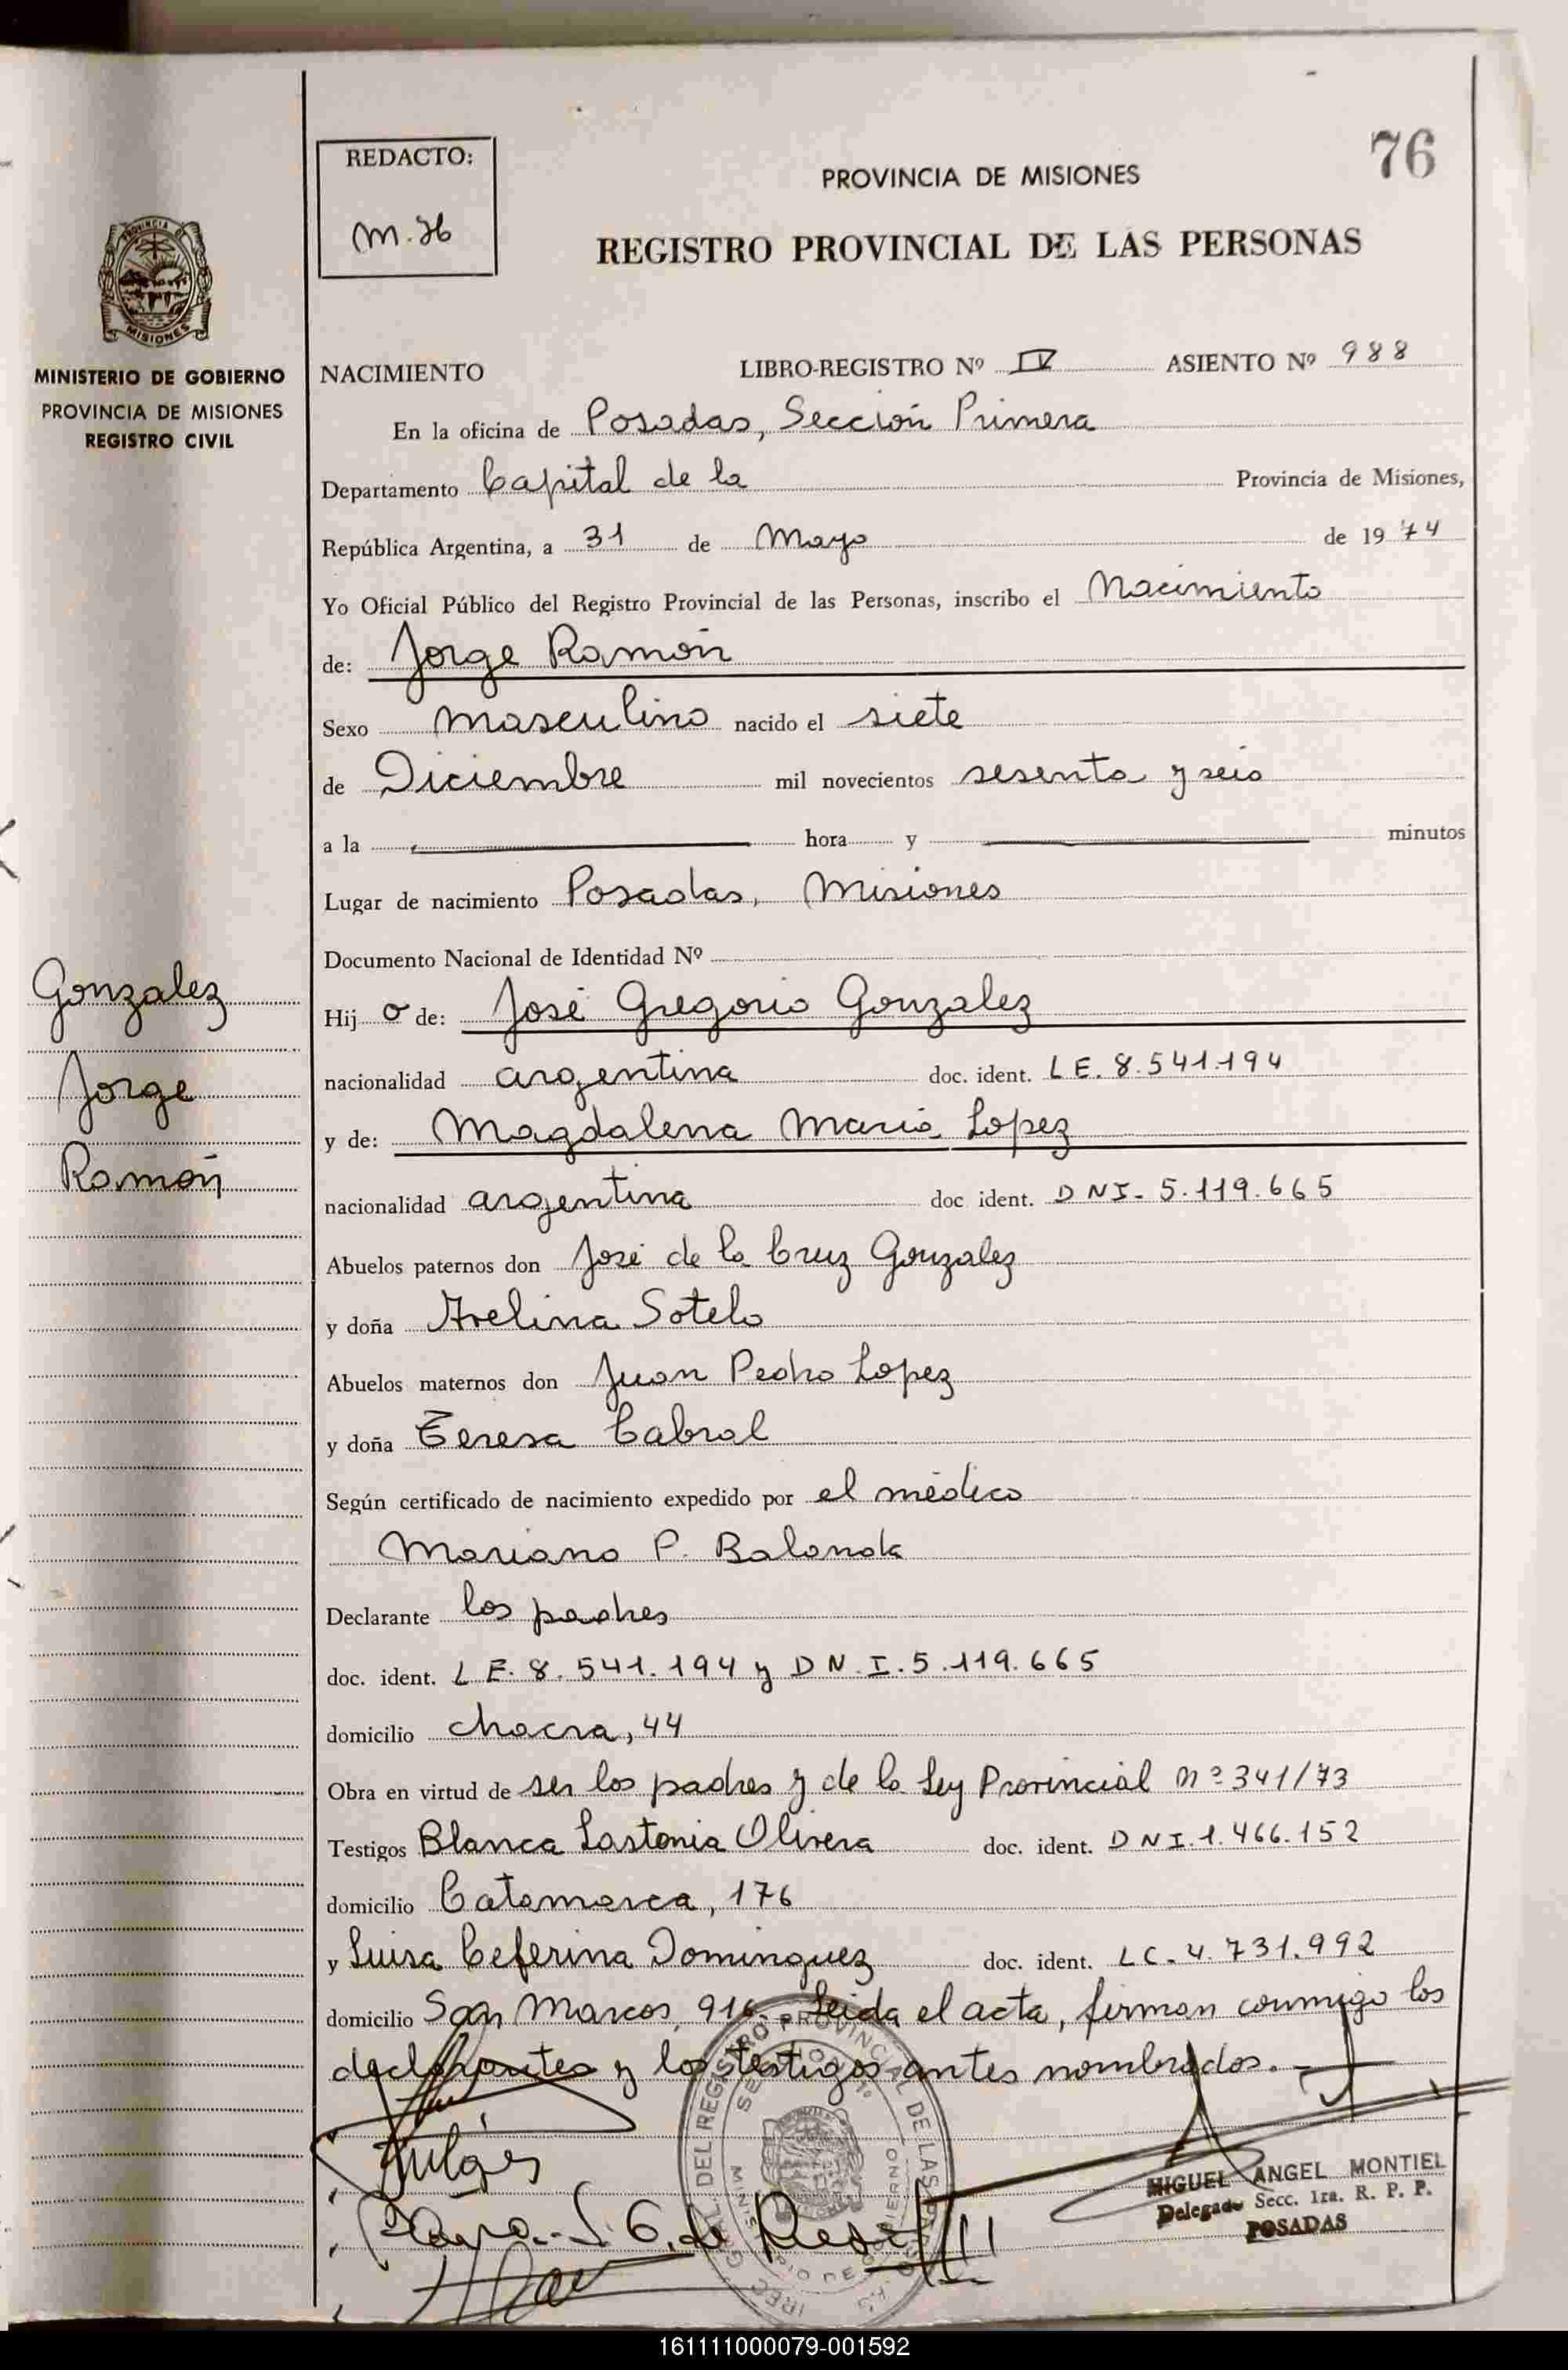 76
REDACTO:
PROVINCIA DE MISIONES
REGISTRO PROVINCIAL DE LAS PERSONAS
PROVINCIA DE
MISIONES
MINISTERIO DE GOBIERNO
PROVINCIA DE MISIONES
REGISTRO CIVIL
NACIMIENTO LIBRO-REGISTRO Nº IV ASIENTO Nº 988
En la oficina de Posadas, Sección Primera
Departamento Capital de la Provincia de Misiones,
República Argentina, a 31 de Mayo de 1974
Yo Oficial Público del Registro Provincial de las Personas, inscribo el Nacimiento
de: Jorge Ramón
Sexo masculino nacido el siete
de Diciembre mil novecientos sesenta y seis
a la hora y minutos
Lugar de nacimiento Posadas, Misiones
Documento Nacional de Identidad Nº
Gonzalez
Jorge
Ramón
Hijo de: José Gregorio Gonzalez
nacionalidad argentina doc. ident. LE. 8.541.194
y de: Magdalena Maria Lopez
nacionalidad argentina doc ident. DNI. 5.119.665
Abuelos paternos don José de la Cruz Gonzalez
y doña Avelina Sotelo
Abuelos maternos don Juan Pedro Lopez
y doña Teresa Cabral
Según certificado de nacimiento expedido por el médico
Mariano P. Balonda
Declarante los padres
doc. ident. L E. 8. 541. 194 y D N. I. 5. 119. 665
domicilio chacra, 44
Obra en virtud de ser los padres y de la Ley Provincial nº 341/73
Testigos Blanca Lastenia Olivera doc. ident. DNI. 1. 466. 152
domicilio Catamarca, 176
y Luisa Ceferina Dominguez doc. ident. LC. 4. 731. 992
domicilio San Marcos, 916. Leida el acta, firman conmigo los
declarantes y los testigos antes nombrados.
MIGUEL ANGEL MONTIEL
Delegado Secc. 1ra. R. P. P.
POSADAS
161111000079-001592